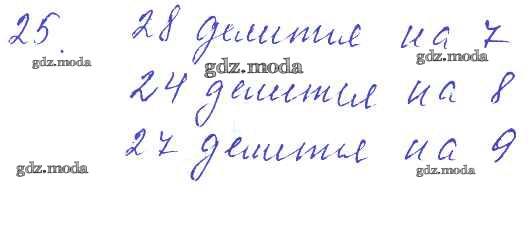 25. 28 делится на 7
gdz.moda gdz.moda gdz.moda
24 делится на 8
27 делится на 9
gdz.moda gdz.moda